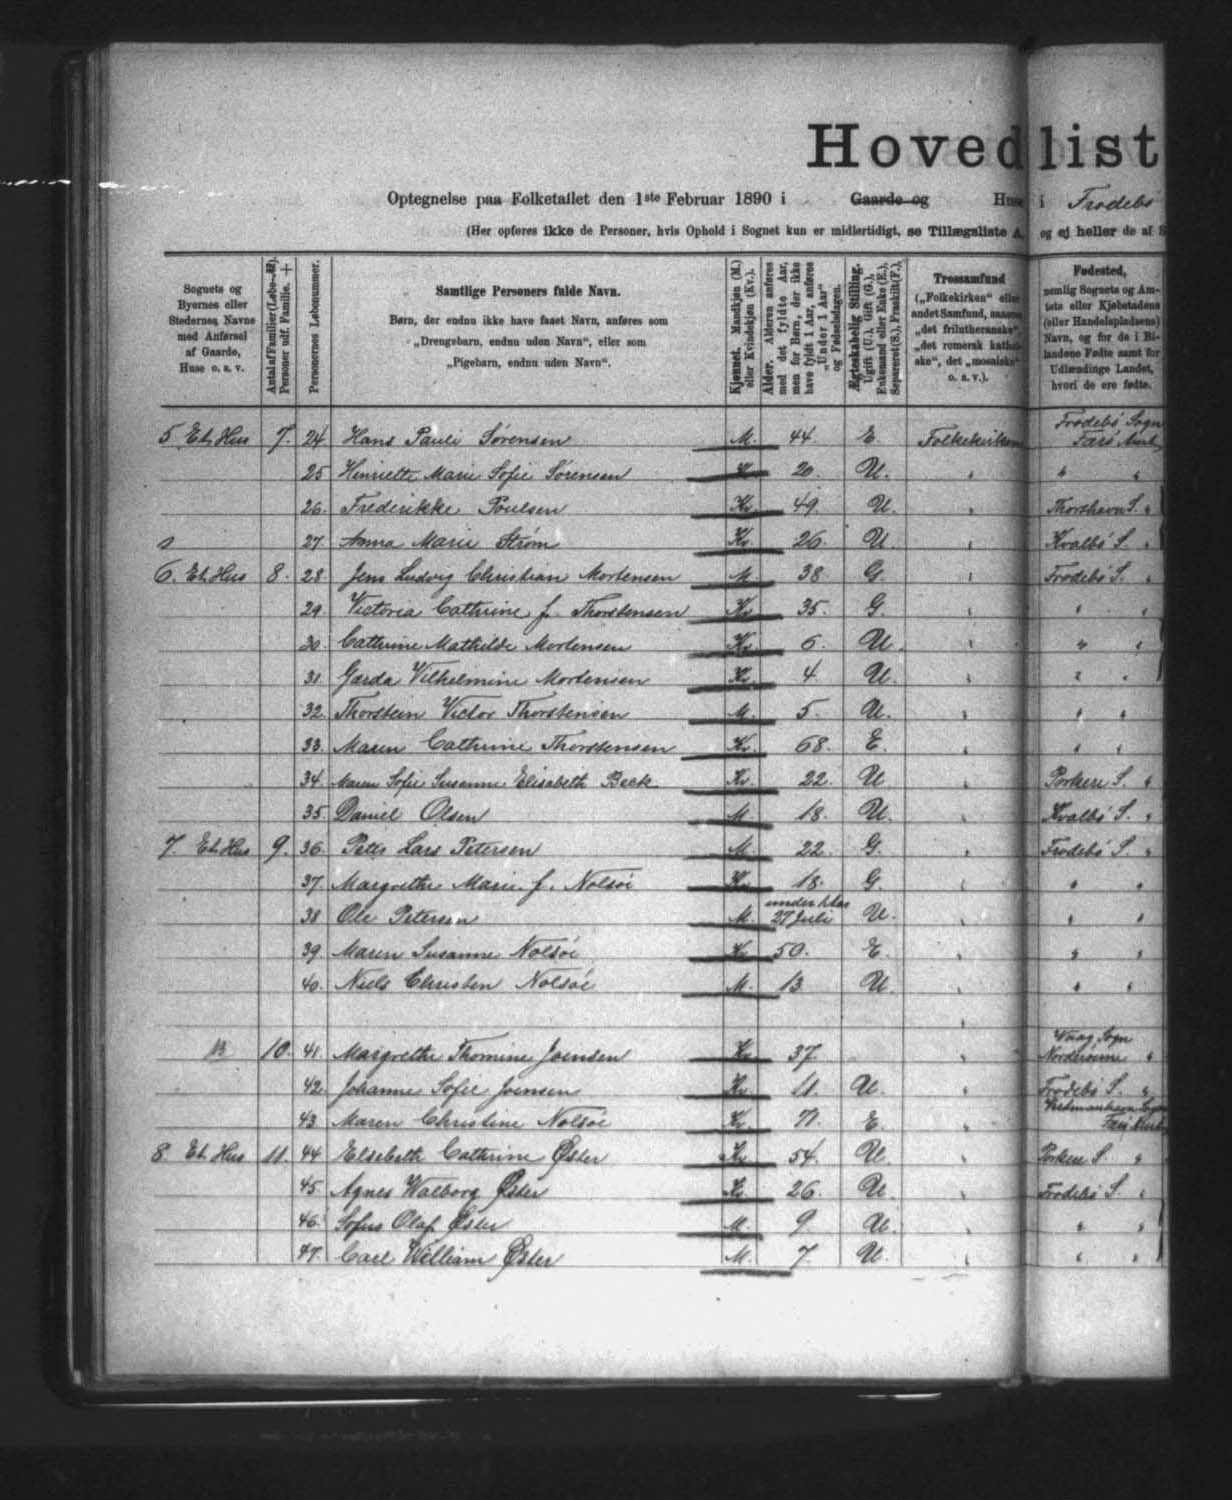 Hovedlist
Optegnelse paa Folketallet den 1ste Februar 1890 i Gaarde og Huse i Frodebø
(Her opføres ikke de Personer, hvis Ophold i Sognet kun er midlertidigt, se Tillægsliste A, og ej heller de af S
Sognets og
Byernes eller
Stedernes Navne
med Anførsel
af Gaarde,
Huse o. s. v.
Antal af Familier (Løbe-№).
Personer udf. Familie. +
Personernes Løbenummer.
Samtlige Personers fulde Navn.
Børn, der endnu ikke have faaet Navn, anføres som
„Drengebarn, endnu uden Navn“, eller som
„Pigebarn, endnu uden Navn“.
Kjønnet. Mandkjøn (M.)
eller Kvindekjøn (Kv.).
Alder. Alderen anføres
med det fyldte Aar,
men for Børn, der ikke
have fyldt 1 Aar, anføres
„Under 1 Aar“
og Fødselsdagen.
Ægteskabelig Stilling.
Ugift (U.), Gift (G.),
Enkemand eller Enke (E.),
Separeret (S.), Fraskilt (F.).
Trossamfund
(„Folkekirken“ eller
andet Samfund, saasom
„det frilutheranske“,
„det romersk kathol
ske“, det „mosaiske“
o. s. v.).
Fødested,
nemlig Sognets og Am-
tets eller Kjøbstadens
(eller Handelspladsens)
Navn, og for de i Bi-
landene Fødte samt for
Udlændinge Landet,
hvori de ere fødte.
5 Et Hus 7. 24 Hans Pauli Sørensen M. 44. E. Folkekirken Frodebø Sogn Færø Amt
25 Henriette Marie Sofie Sørensen K 20. U. " " "
26. Frederikke Poulsen Kv. 49. U. " Thorshavn S. "
27. Anna Marie Strøm Kv. 26. U. " Kvalbø S. "
6. Et Hus 8. 28. Jens Ludvig Christian Mortensen M. 38. G. " Frodebø S. "
29. Victoria Cathrine f. Thorstensen Kv. 35. G. " " "
30. Cathrine Mathilde Mortensen Kv. 6. U. " " "
31. Garda Vilhelmine Mortensen Kv. 4. U. " " "
32. Thorstein Victor Thorstensen M. 5. U. " " "
33. Maren Cathrine Thorstensen Kv. 68. E. " " "
34. Maren Sofie Susanne Elisabeth Beck Kv. 22. U " Porkere S. "
35. Daniel Olsen M. 18. U. " Kvalbø S. "
7. Et Hus 9. 36. Peter Lars Petersen M. 22. G. " Frodebø S. "
37. Margrethe Marie f. Nolsøe Kv. 18. G. " " "
38 Ole Petersen M. under 1 Aar 27 Juli U. " " "
39. Maren Susanne Nolsøe Kv. 50. E. " " "
40. Niels Christen Nolsøe M. 13 U. " " "
10. 41. Margrethe Thomine Joensen Kv. 37. " Waag Sogn "
42. Johanne Sofie Joensen Kv. 11. U. " Frodebø S. "
43. Maren Christine Nolsøe Kv. 71. E. " Vestmanhavn Sogn Færø Amt
8. Et Hus 11. 44. Elsebeth Cathrine Øster Kv. 54. U. " Porkere S. "
45. Agnes Walborg Øster Kv. 26. U. " Frodebø S. "
46. Sofus Olaf Øster M. 9. U. " " "
47. Carl William Øster M. 7. U. " " "